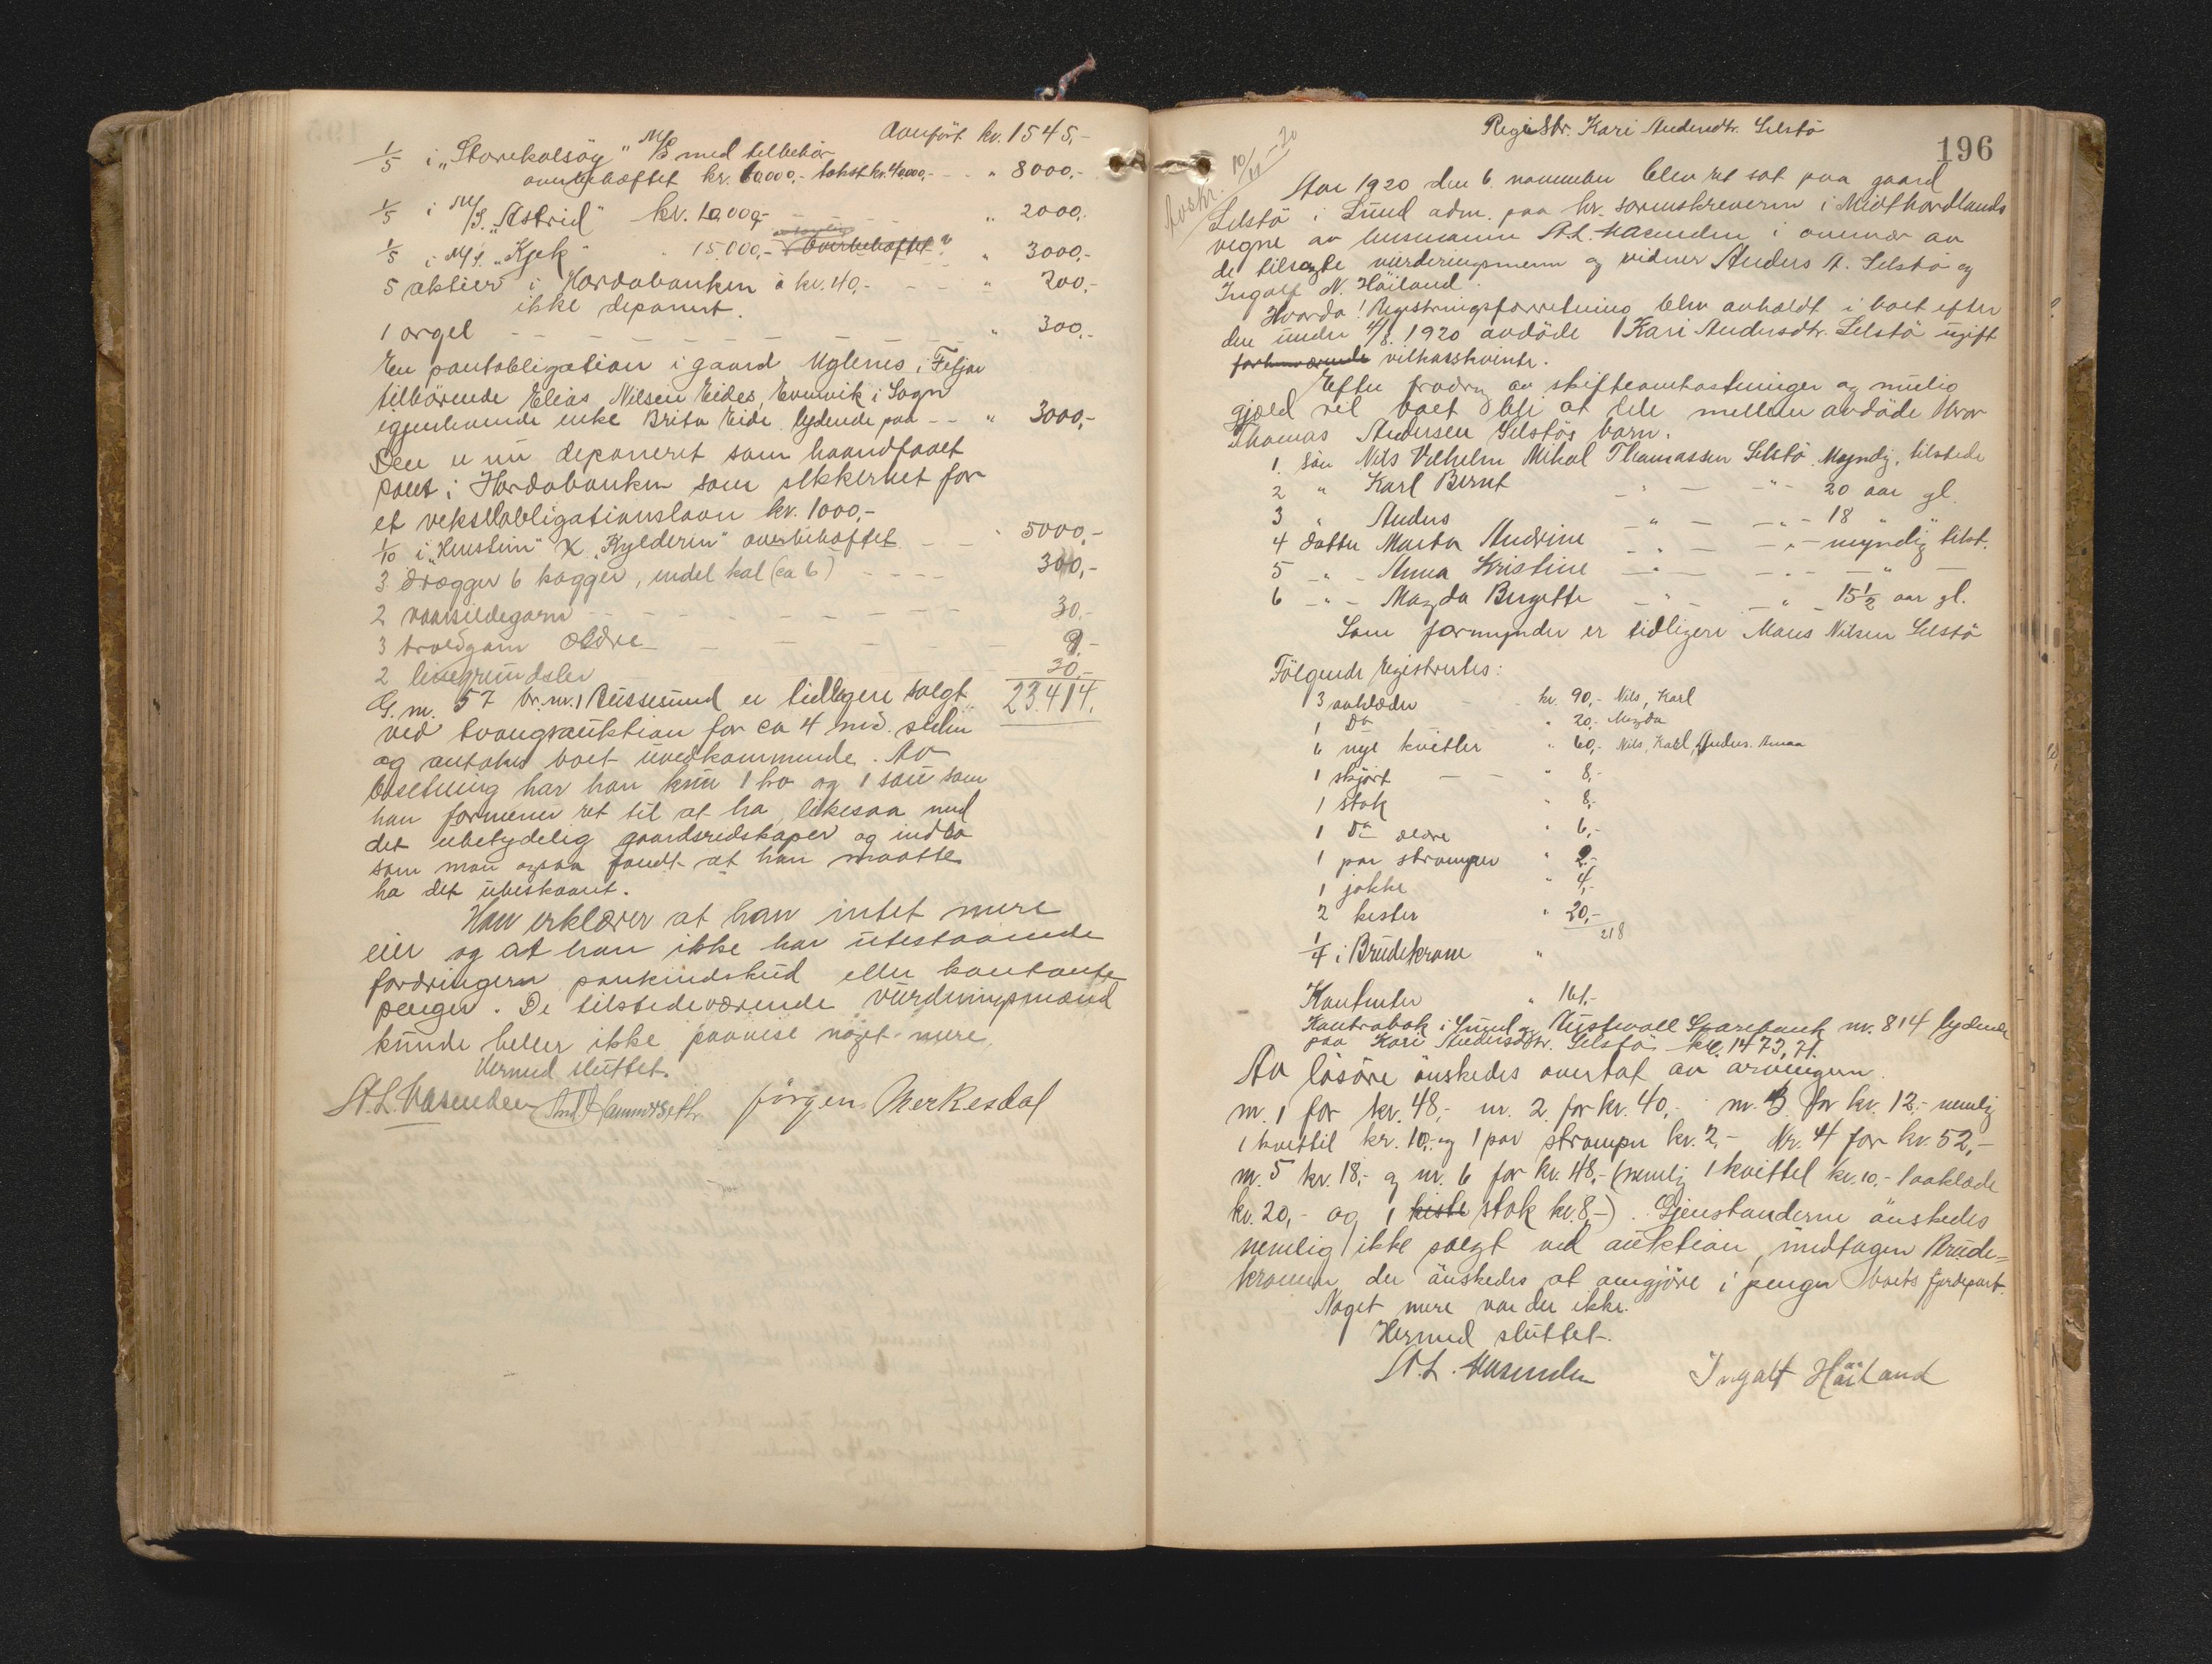 Overført kr. 1545,-
1/5 i "Storekalsöy" M/S med tilbehör
overbehæftet kr. 60000,- takst kr. 40000,- - - " 8000,-
1/5 i M/S. "Astrid" kr. 10,000,- - - - " 2000,-
1/5 i M/S. "Kjek" " 15.000,- overbehæftet? " 3000,-
5 aktier i Hordabanken á kr. 40,- - - - " 200,-
ikke deponert.
1 orgel - - - - - - - - - " 300,-
En pantobligation i gaard Uglenes i Fitjar
tilhörende Elias Nilsen Eides, Evenvik i Sogn
igjenlevende enke Brita Eide lydende paa - - " 3000,-
Den er nu deponeret som haandfaaet
pant i Hordabanken som sikkerhet for
et vekselobligationslaan kr. 1000,-
1/10 i "Kenstein" X "Kylderin" overbehæftet - - " 5000,-
3 drægger 6 kagger, endel kal (ca 6) - - - - 300,-
2 vaarsildegarn - - - - - - - - 30,-
3 troldgarn ældre - - - - - - 9,-
2 linegrundsler 30,-
G. nr. 57 br. nr. 1 Bussesund er tidligere solgt 23.414,
ved tvangsauktion for ca 4 md. siden
og antokes boet uvedkommende. Av
besetning har han kun 1 ko og 1 sau som
han formener ret til at ha, likesaa med
det ubetydelig gaardsredskaper og indbo
som man ogsaa fandt at han maatte
ha det ubeskaaret.
Han erklærer at han intet mere
eier og at han ikke har utestaaende
fordringer, bankindskud eller kontante
penger. De tilstedeværende vurderingsmænd
kunde heller ikke paavise noget mere.
Hermed sluttet.
A. L. Vasenden Jørgen Merkesdal
Registr. Kari Andersdtr. Selstö
196
Avskr. 10/11 - 20
Aar 1920 den 6. november blev ret sat paa gaard
Selstö i Sund adm. paa hr. sorenskriveren i Midthordlands
vegne av lensmann A. L. Vasenden i overvær av
de tilsagte vurderingsmenn og vidner Anders A. Selstö og
Ingolf N. Häiland.
Hvorda! Registringsforretning blev avholdt i boet efter
den under 4/8. 1920 avdöde Kari Andersdtr. Selstö ugift
forhenværende vilkaarskvinde.
Efter fradrag av skifteomkostninger og mulig
gjæld vil boet bli at dele mellem avdöde bror
Thomas Andersen Selstös barn.
1. sön Nils Vilhelm Mikal Thomassen Selstö. Myndig, tilstede
2 " Karl Bernt - " - - " - 20 aar gl.
3 " Anders - " - - " - 18 " "
4 datter Marta Andrine - " - " - myndig tilst.
5 - " - Anna Kristine - " - - " - - " -
6 - " - Magda Bergitte - " - - " 15 1/2 aar gl.
Som formynder er tidligere Mons Nilsen Selstö
Fölgende registrertes:
3 aaklæder - - kr. 90,- Nils, Karl
1 Do " 20,- Magda
6 nye kvitler " 60,- Nils, Karl, Anders. Anna
1 skjört - - " 8,-
1 stak " 8,-
1 Do ældre " 6,-
1 par strömper " 2,-
1 jakke " 4,-
2 kister " 20,-
218
1/4 i Brudekrone "
Kontanter " 161,-
Kontrabok i Sund og Austevoll Sparebank nr. 814 lydende
paa Kari Andersdtr. Selstö kr. 1473,71.
Av lösöre önskedes overtat av arvingerne.
nr. 1 for kr. 48,- nr. 2 for kr. 40,- nr. 3 for kr. 12,- nemlig
1 kvittil kr. 10,- og 1 par strömper kr. 2,- Nr. 4 for kr. 52,-
nr. 5 kr. 18,- og nr. 6 for kr. 48,- (nemlig 1 kvittel kr. 10,- 1 aaklæde
kr. 20,- og 1 kiste stak kr. 8,-). Gjenstanderne önskedes
nemlig ikke solgt ved auktion, undtagen Brude=
kronen, der önskedes at omgjöre i penger boets fjerdepart.
Noget mere var der ikke.
Hermed sluttet.
A. L. Vasenden Ingolf Häiland